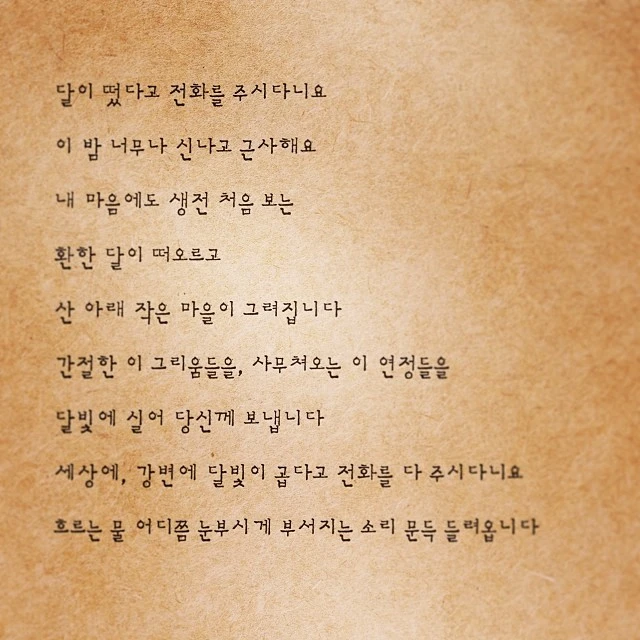 달이 떴다고 전화를 주시다니요
이 밤 너무나 신나고 근사해요
내 마음에도 생전 처음 보는
환한 달이 떠오르고
산 아래 작은 마을이 그려집니다
간절한 이 그리움들을, 사무쳐오는 이 연정들을
달빛에 실어 당신께 보냅니다
세상에, 강변에 달빛이 곱다고 전화를 다 주시다니요
흐르는 물 어디쯤 눈부시게 부서지는 소리 문득 들려옵니다